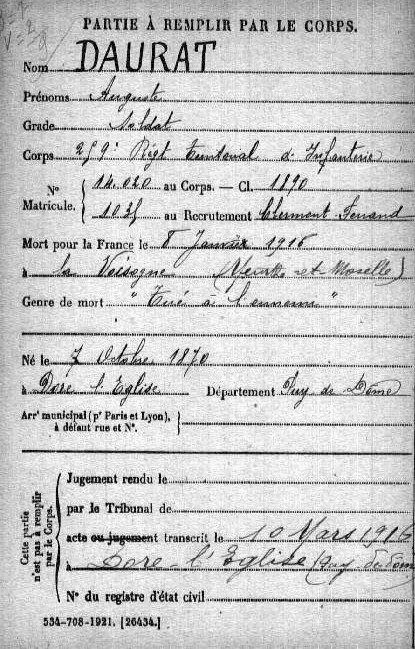 PARTIE À REMPLIR PAR LE CORPS.
Nom DAURAT
Prénoms Auguste
Grade Soldat
Corps 259e Régt Territorial d'Infanterie
N° Matricule. 14.020 au Corps. — Cl. 1890
1035 au Recrutement Clermont Ferrand
Mort pour la France le 8 Janvier 1916
à la (Meurthe et Moselle)
Genre de mort "Tué à l'ennemi"
Né le 7 Octobre 1870
à Dore l'Eglise Département Puy de Dôme
Arrt municipal (pr Paris et Lyon), à défaut rue et N°.
Cette partie n'est pas à remplir par le Corps.
Jugement rendu le
par le Tribunal de
acte ou jugement transcrit le 10 Mars 1916
à Dore-l'Eglise (Puy de Dôm
N° du registre d'état civil
534-708-1921. [26434.]